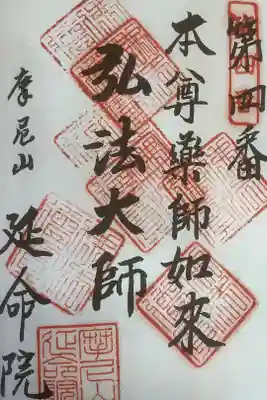 第四番
本尊薬師如來
弘法大師
摩尼山
延命院